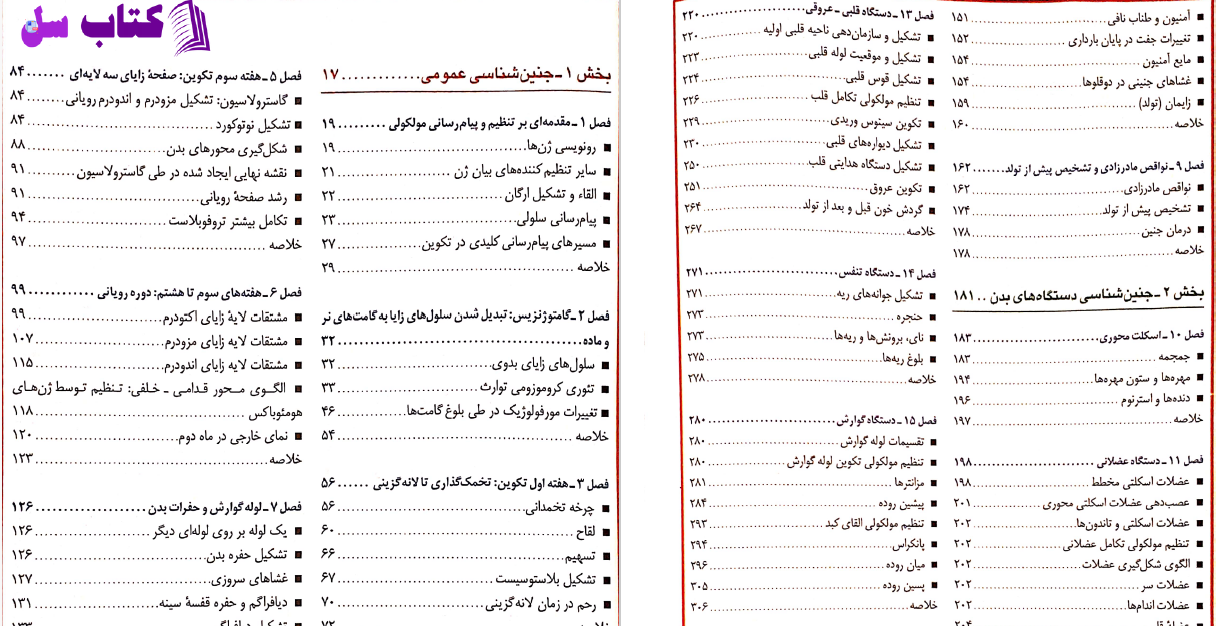 کتاب سل
بخش ۱ ـ جنین‌شناسی عمومی............۱۷
فصل ۱ ـ مقدمه‌ای بر تنظیم و پیام‌رسانی مولکولی.........۱۹
■ رونویسی ژن‌ها...........۱۹
■ سایر تنظیم کننده‌های بیان ژن...........۲۱
■ القاء و تشکیل ارگان...........۲۲
■ پیام‌رسانی سلولی...........۲۳
■ مسیرهای پیام‌رسانی کلیدی در تکوین...........۲۷
خلاصه...........۲۹
فصل ۲ ـ گامتوژنزیس: تبدیل شدن سلول‌های زایا به گامت‌های نر
و ماده...........۳۲
■ سلول‌های زایای بدوی...........۳۲
■ تئوری کروموزومی توارث...........۳۳
■ تغییرات مورفولوژیک در طی بلوغ گامت‌ها...........۴۶
خلاصه...........۵۴
فصل ۳ ـ هفته اول تکوین: تخمک‌گذاری تا لانه‌گزینی......۵۶
■ چرخه تخمدانی...........۵۶
■ لقاح...........۶۰
■ تسهیم...........۶۶
■ تشکیل بلاستوسیست...........۶۷
■ رحم در زمان لانه‌گزینی...........۷۰
خلاصه...........۷۲
فصل ۵ ـ هفته سوم تکوین: صفحهٔ زایای سه لایه‌ای.......۸۴
■ گاسترولاسیون: تشکیل مزودرم و اندودرم رویانی...........۸۴
■ تشکیل نوتوکورد...........۸۴
■ شکل‌گیری محورهای بدن...........۸۸
■ نقشه نهایی ایجاد شده در طی گاسترولاسیون...........۹۱
■ رشد صفحهٔ رویانی...........۹۱
■ تکامل بیشتر تروفوبلاست...........۹۴
خلاصه...........۹۷
فصل ۶ ـ هفته‌های سوم تا هشتم: دوره رویانی............۹۹
■ مشتقات لایهٔ زایای اکتودرم...........۹۹
■ مشتقات لایه زایای مزودرم...........۱۰۷
■ مشتقات لایه زایای اندودرم...........۱۱۵
■ الگوی محور قدامی ـ خلفی: تنظیم توسط ژن‌های
هومئوباکس...........۱۱۸
■ نمای خارجی در ماه دوم...........۱۲۰
خلاصه...........۱۲۳
فصل ۷ ـ لوله گوارش و حفرات بدن...........۱۲۶
■ یک لوله بر روی لوله‌ای دیگر...........۱۲۶
■ تشکیل حفره بدن...........۱۲۶
■ غشاهای سروزی...........۱۲۷
■ دیافراگم و حفره قفسهٔ سینه...........۱۳۱
■ تشکیل دیافراگم...........۱۳۳
■ آمنیون و طناب نافی...........۱۵۱
■ تغییرات جفت در پایان بارداری...........۱۵۲
■ مایع آمنیون...........۱۵۴
■ غشاهای جنینی در دوقلوها...........۱۵۴
■ زایمان (تولد)...........۱۵۹
خلاصه...........۱۶۰
فصل ۹ ـ نواقص مادرزادی و تشخیص پیش از تولد.......۱۶۲
■ نواقص مادرزادی...........۱۶۲
■ تشخیص پیش از تولد...........۱۷۴
■ درمان جنین...........۱۷۸
خلاصه...........۱۷۸
بخش ۲ ـ جنین‌شناسی دستگاه‌های بدن ..۱۸۱
فصل ۱۰ ـ اسکلت محوری...........۱۸۳
■ جمجمه...........۱۸۳
■ مهره‌ها و ستون مهره‌ها...........۱۹۴
■ دنده‌ها و استرنوم...........۱۹۶
خلاصه...........۱۹۷
فصل ۱۱ ـ دستگاه عضلانی...........۱۹۸
■ عضلات اسکلتی مخطط...........۱۹۸
■ عصب‌دهی عضلات اسکلتی محوری...........۲۰۱
■ عضلات اسکلتی و تاندون‌ها...........۲۰۲
■ تنظیم مولکولی تکامل عضلانی...........۲۰۲
■ الگوی شکل‌گیری عضلات...........۲۰۲
■ عضلات سر...........۲۰۲
■ عضلات اندام‌ها...........۲۰۲
فصل ۱۳ ـ دستگاه قلبی ـ عروقی...........۲۲۰
■ تشکیل و سازمان‌دهی ناحیه قلبی اولیه...........۲۲۰
■ تشکیل و موقعیت لوله قلبی...........۲۲۳
■ تشکیل قوس قلبی...........۲۲۴
■ تنظیم مولکولی تکامل قلب...........۲۲۶
■ تکوین سینوس وریدی...........۲۲۹
■ تشکیل دیواره‌های قلبی...........۲۳۰
■ تشکیل دستگاه هدایتی قلب...........۲۵۰
■ تکوین عروق...........۲۵۱
■ گردش خون قبل و بعد از تولد...........۲۶۴
خلاصه...........۲۶۷
فصل ۱۴ ـ دستگاه تنفس...........۲۷۱
■ تشکیل جوانه‌های ریه...........۲۷۱
■ حنجره...........۲۷۳
■ نای، برونش‌ها و ریه‌ها...........۲۷۳
■ بلوغ ریه‌ها...........۲۷۵
خلاصه...........۲۷۸
فصل ۱۵ ـ دستگاه گوارش...........۲۸۰
■ تقسیمات لوله گوارش...........۲۸۰
■ تنظیم مولکولی تکوین لوله گوارش...........۲۸۰
■ مزانترها...........۲۸۱
■ پیشین روده...........۲۸۴
■ تنظیم مولکولی القای کبد...........۲۹۳
■ پانکراس...........۲۹۴
■ میان روده...........۲۹۶
■ پسین روده...........۳۰۵
خلاصه...........۳۰۶